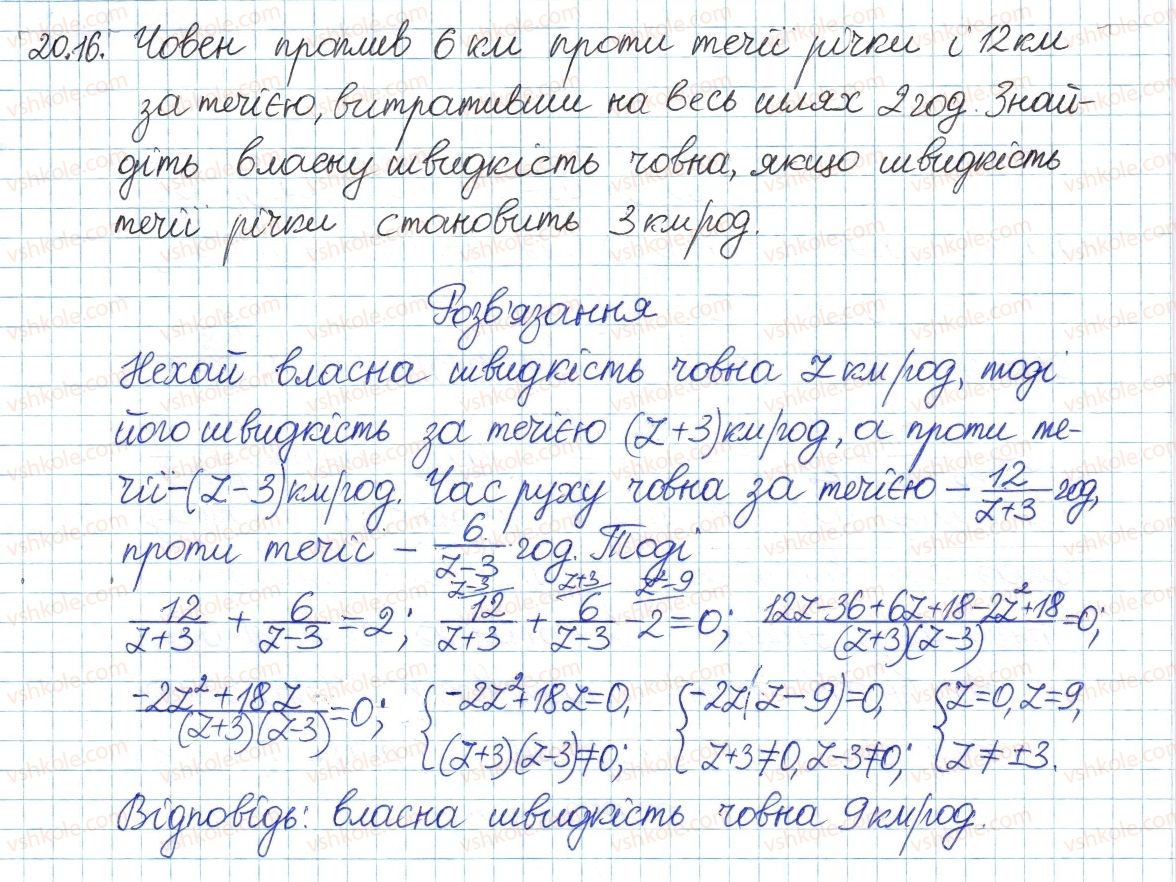 20.16. Човен проплив 6 км проти течії річки і 12 км
за течією, витративши на весь шлях 2 год. Знай-
діть власну швидкість човна, якщо швидкість
течії річки становить 3 км/год.
Розв'язання
Нехай власна швидкість човна z км/год, тоді
його швидкість за течією (z+3) км/год, а проти те-
чії – (z-3) км/год. Час руху човна за течією – 12/(z+3) год,
проти течії – 6/(z-3) год. Тоді
z-3 z+3 z²-9
12/(z+3) + 6/(z-3) = 2; 12/(z+3) + 6/(z-3) - 2 = 0; (12z-36+6z+18-2z²+18)/((z+3)(z-3)) = 0;
(-2z²+18z)/((z+3)(z-3)) = 0; { -2z²+18z=0, { -2z(z-9)=0, { z=0, z=9,
(z+3)(z-3)≠0; z+3≠0, z-3≠0; z≠±3.
Відповідь: власна швидкість човна 9 км/год.
vshkole.com